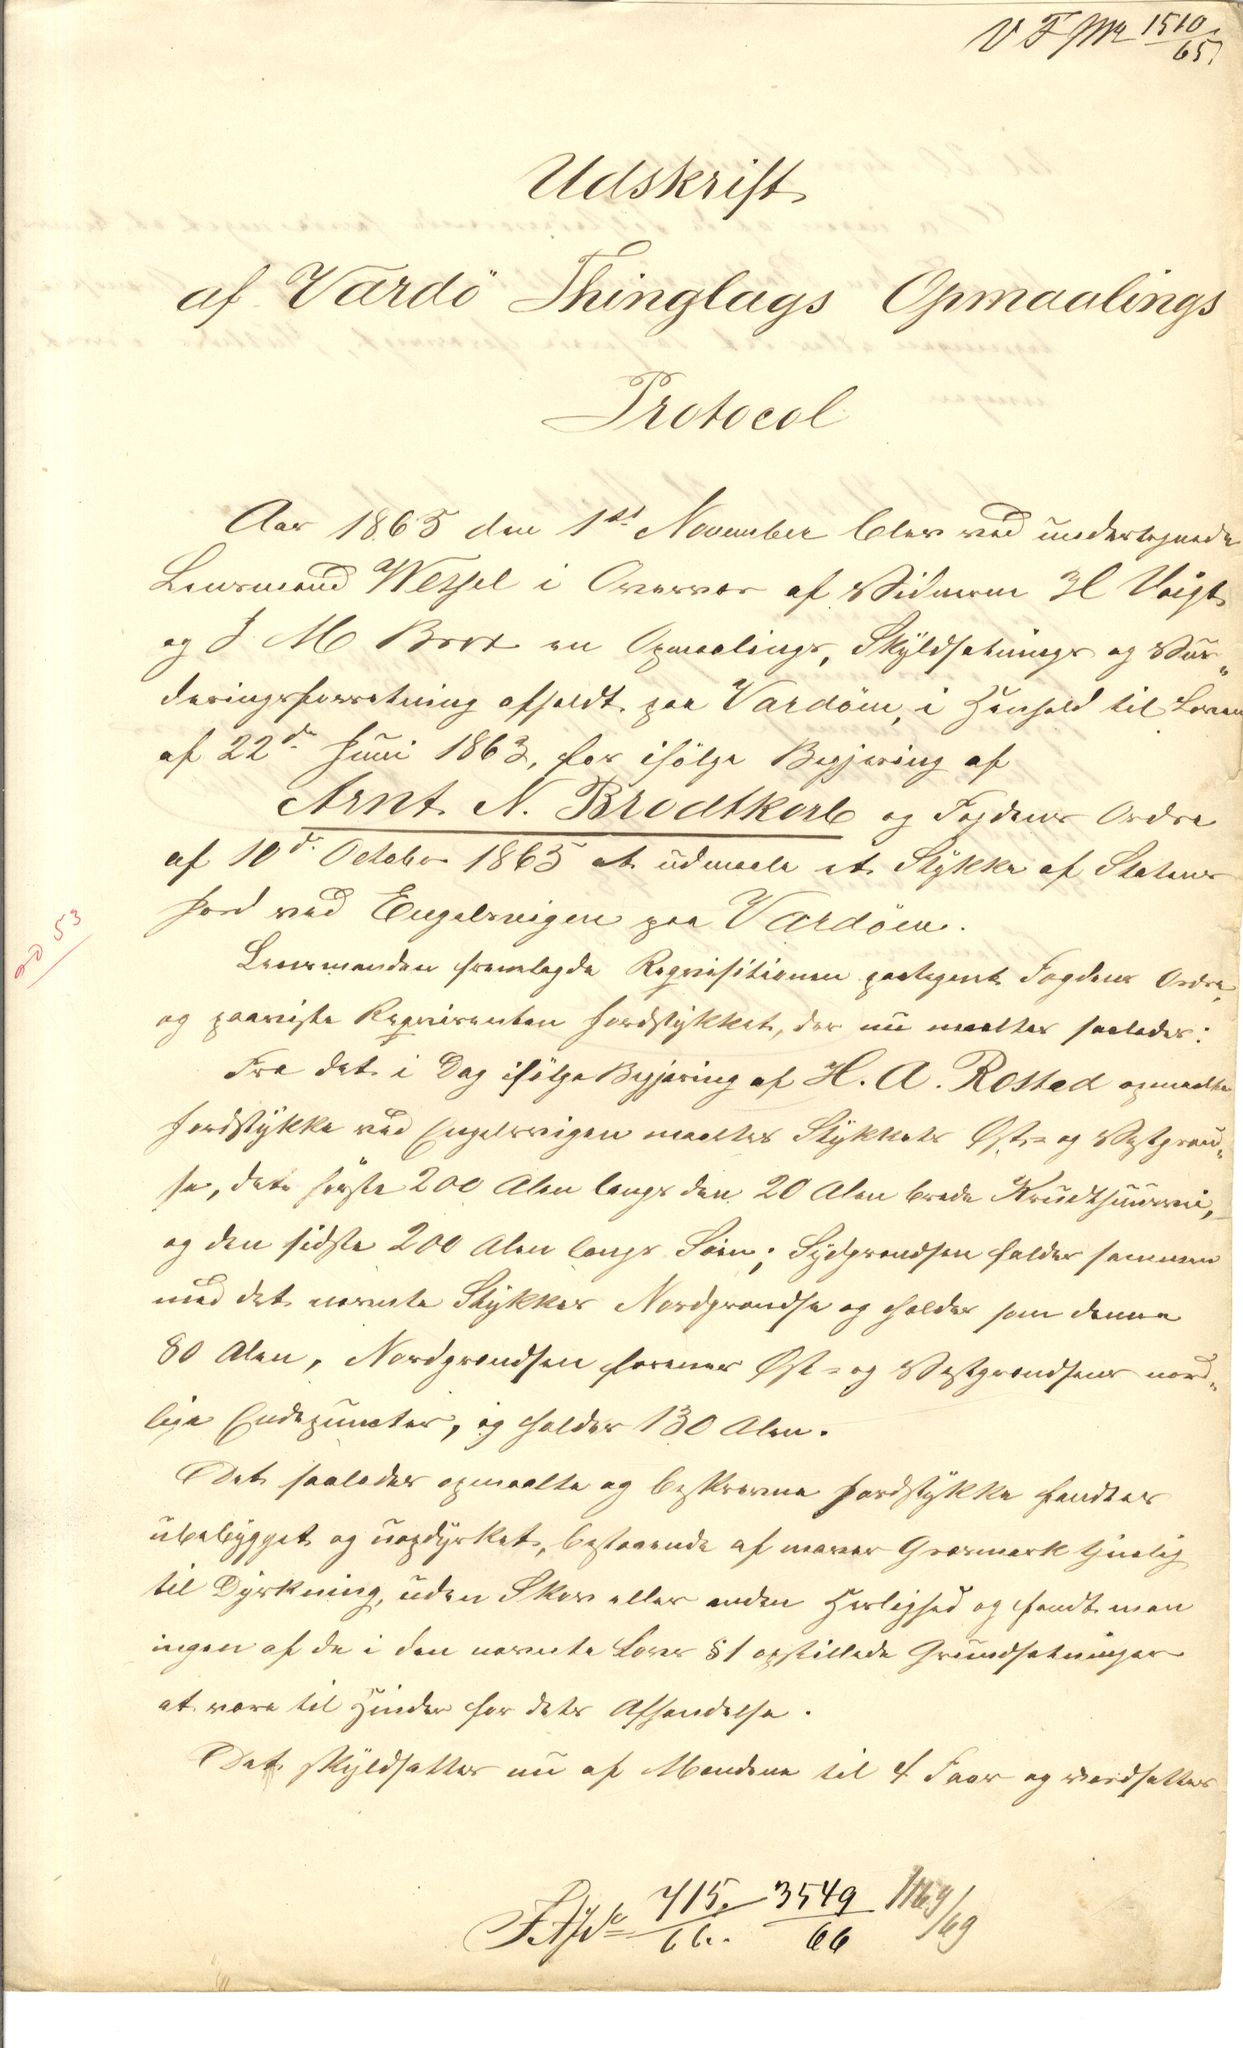 V F No 1510/65.
Udskrift
af Vardö Thinglags Opmaalings
Protocol
Aar 1865 den 1ste November blev ved undertegnede
Lensmand Wessel i Overvær af Vidnerne H Voigt
og J. M Brox en Opmaalings, Skyldsætnings og Vur„
deringsforretning afholdt paa Vardöen, i Henhold til Loven
af 22de Juni 1863, for ifölge Begjæring af
Arnt. N. Brodtkorb og Fogdens Ordre
af 10de October 1865 at udmaale et Stykke af Statens
Jord ved Engelsvigen paa Vardöen.
Lensmanden fremlagde Reqvisitionen paategnet Fogdens Ordre,
og paaviste Reqvirenten Jordstykket, der nu maaltes saaledes:
Fra det i Dag ifölge Begjæring af H. A. Rostad opmaalte
Jordstykke ved Engelsvigen maaltes Stykkets Øst- og Vestgrænd„
se, det förste 200 Alen langs den 20 Alen brede Krudthuusvei,
og den sidste 200 Alen langs Söen; Sydgrændsen falder sammen
med det nævnte Stykkes Nordgrændse og holder som denne
80 Alen, Nordgrændsen forener Øst- og Vestgrændsens nord„
lige Endepuncter, og holder 130 Alen.
Det saaledes opmaalte og beskrevne Jordstykke fandtes
ubebygget og uopdyrket, bestaaende af maver Græsmark tjenlig
til Dyrkning, uden Skov eller anden Herlighed og fandt man
ingen af de i den nævnte Lovs § 1 opstillede Grundsætninger
at være til Hinder for dets Afhændelse.
Det skyldsattes nu af Mændene til 4 Faar og værdsattes
715./66. 3549/66 1169/69
53